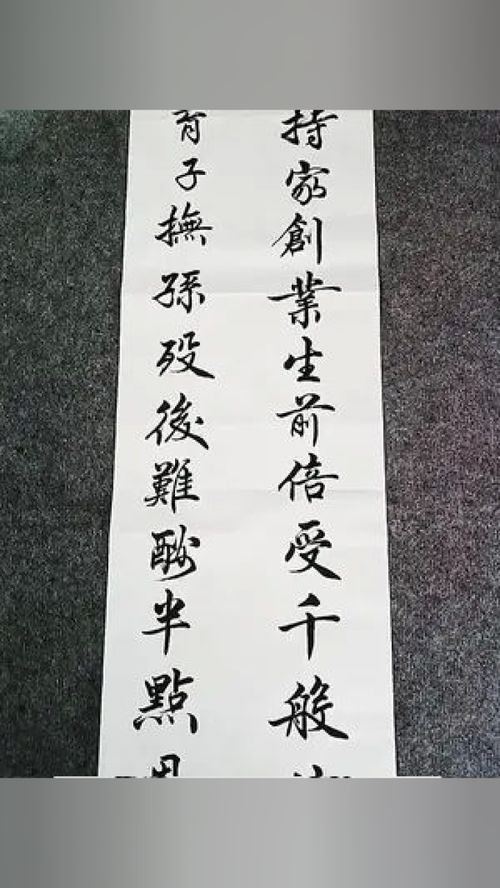 持家創業生前倍受千般
育子撫孫歿後難酬半點